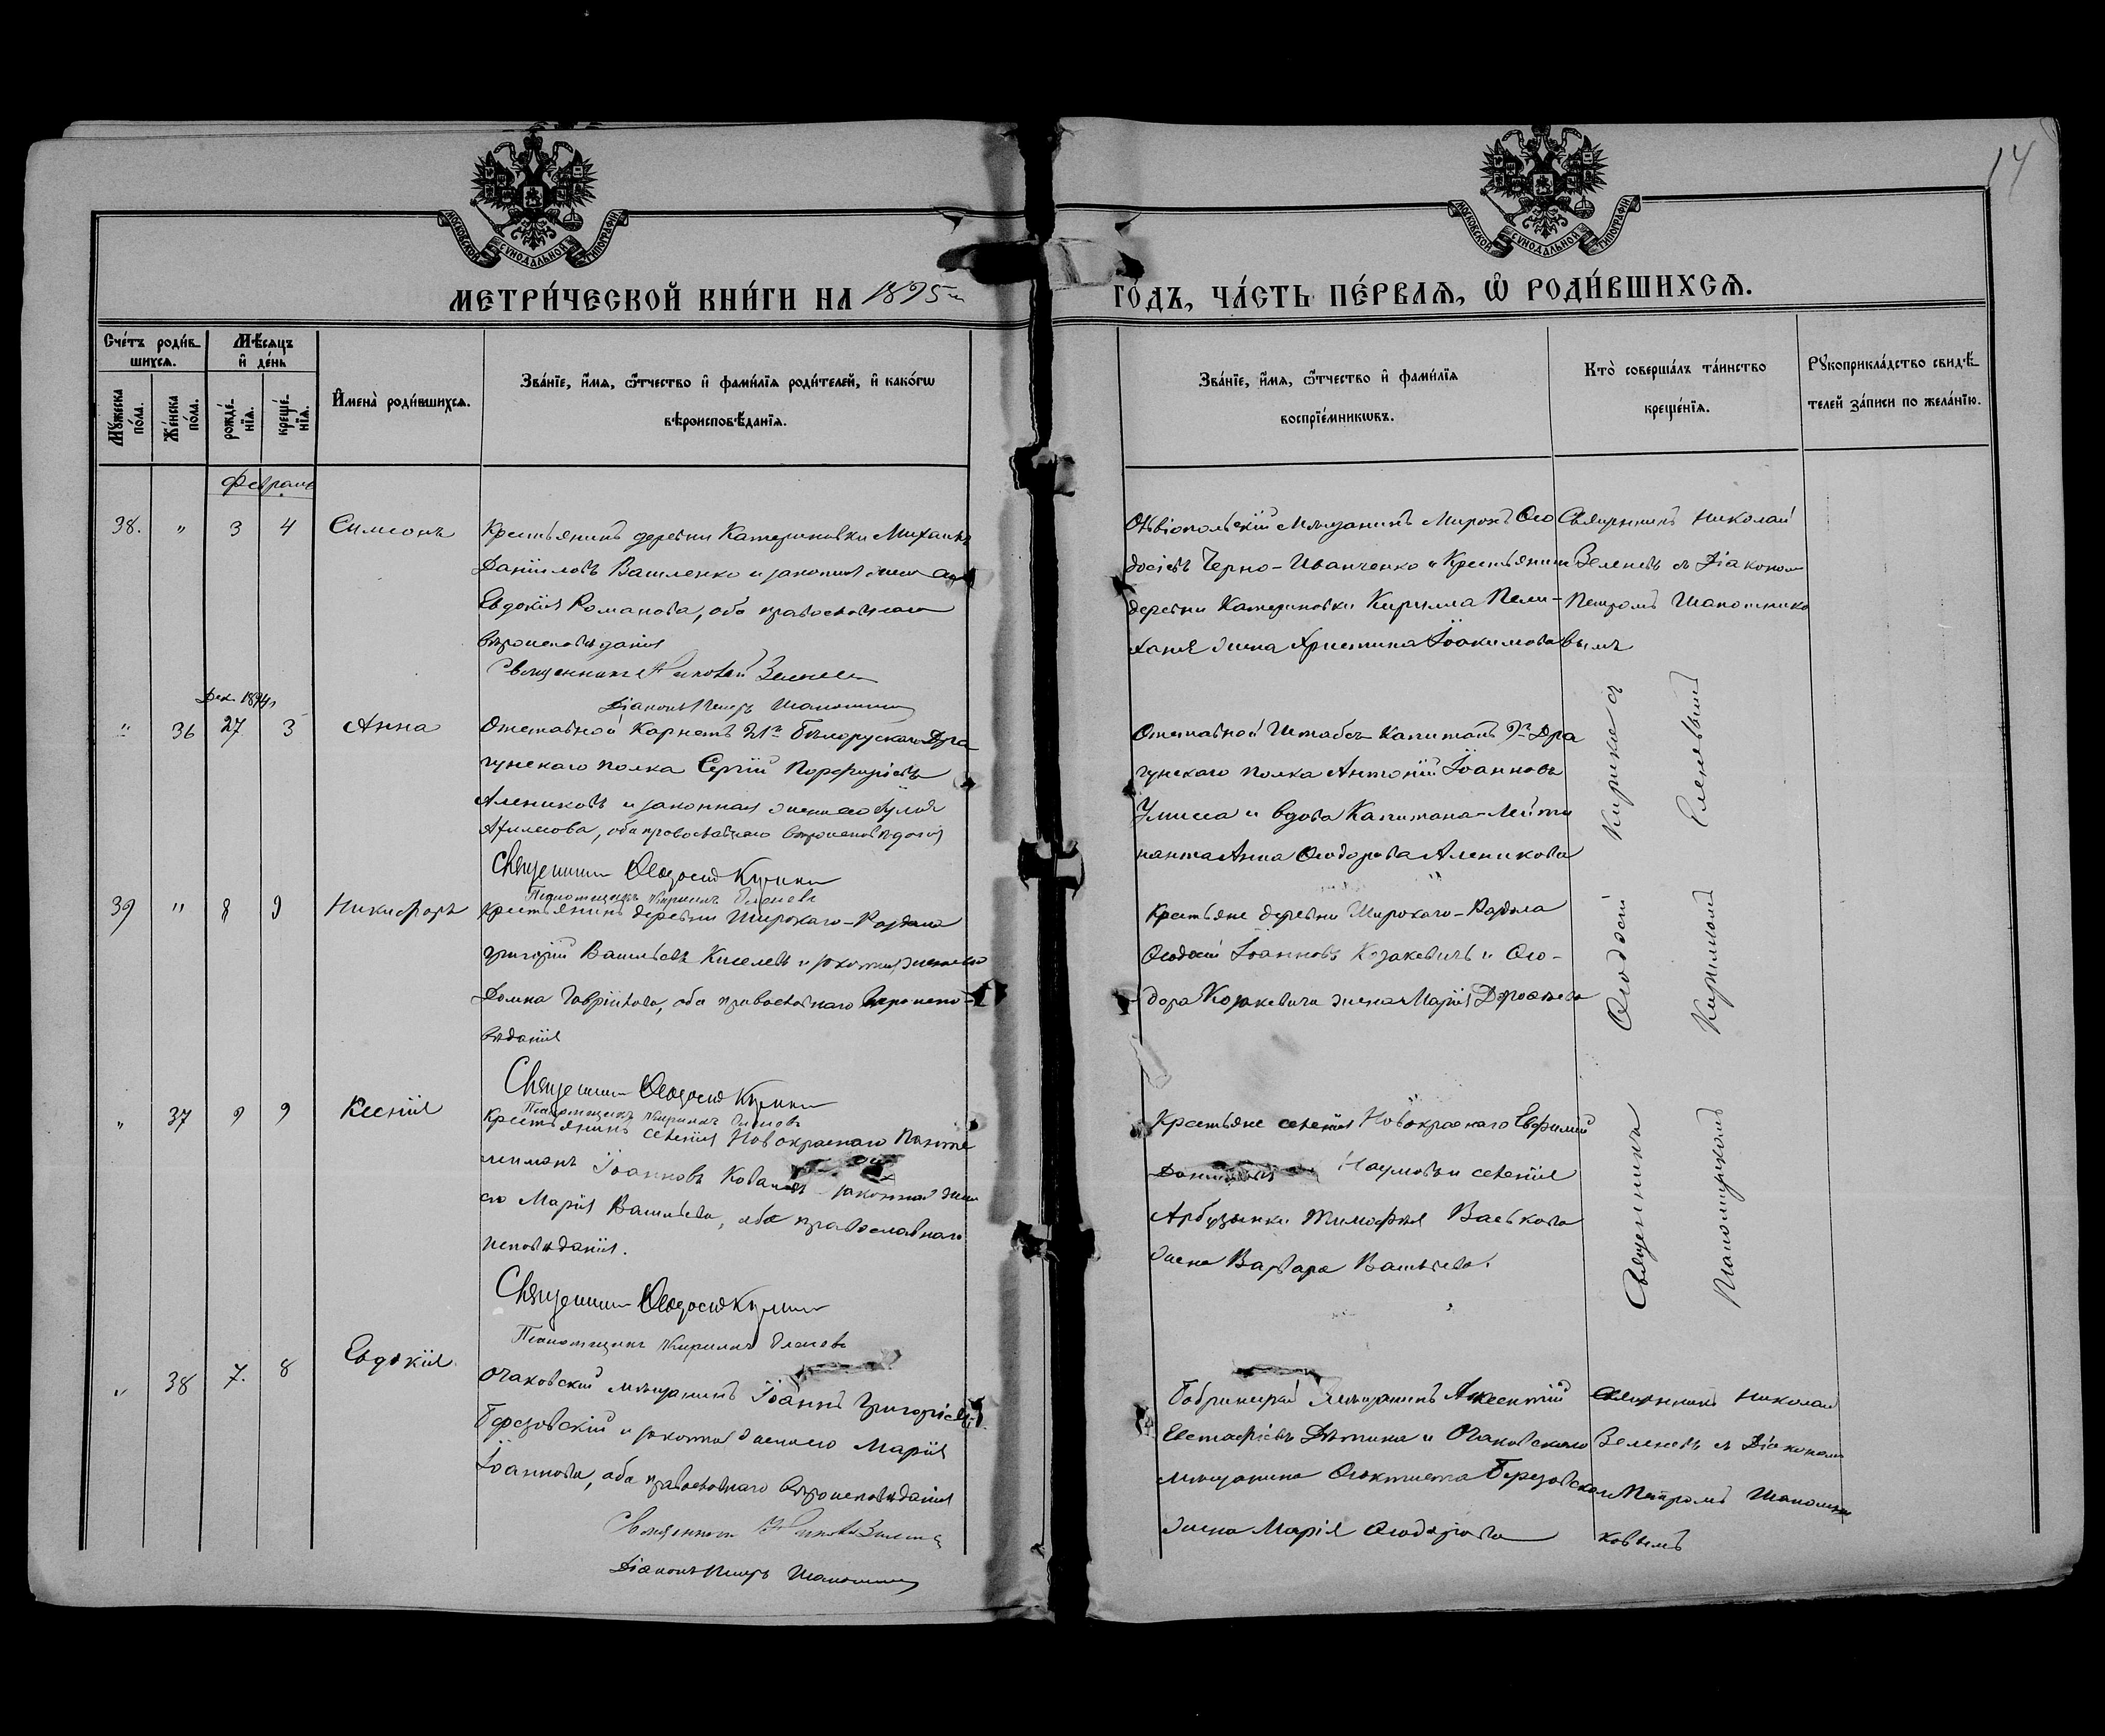 14
МОСКОВСКОЙ СѴНОДАЛЬНОЙ ТИПОГРАФІИ
МОСКОВСКОЙ СѴНОДАЛЬНОЙ ТИПОГРАФІИ
МЕТРИ́ЧЕСКОЙ КНИ́ГИ НА 1895 ГО́ДЪ, ЧА́СТЬ ПЕ́РВАѦ, Ѽ РОДИ́ВШИХСѦ.
Счётъ роди́вшихсѧ.
Мѣ́сѧцъ и҆ де́нь
Мꙋ́жеска по́ла.
Же́нска по́ла.
рожде́нїѧ.
креще́нїѧ.
И҆мена̀ роди́вшихсѧ.
Зва́нїе, и҆́мѧ, ѻ҆́тчество и҆ фами́лїѧ роди́телей, и҆ како́гѡ
вѣроисповѣ́данїѧ.
Зва́нїе, и҆́мѧ, ѻ҆́тчество и҆ фами́лїѧ
воспрїе́мникѡвъ.
Кто̀ соверша́лъ та́инство
креще́нїѧ.
Рꙋкоприкла́дство свидѣ́-
телей за́писи по жела́нїю.
Февраль
38. " 3 4 Симеонъ
Крестьянинъ деревни Катериновки Михаилъ
Даніиловъ Василенко и законная жена его
Евдокія Романова, оба православнаго
вѣроисповѣданія
Священникъ Николай Зеленевъ
Діаконъ Петръ Шапошниковъ
Ольвіопольскій мѣщанинъ Миронъ Ѳео
досіевъ Черно-Иванченко и Крестьянина
деревни Катериновки Кирилла Пели-
жена Христина Іоакимова
Священникъ Николай
Зеленевъ съ Діакономъ
Петромъ Шапошнико
вымъ
Дек. 1894 г
" 36 27 3 Анна
Отставной Корнетъ Бѣлорускаго Дра
гунскаго полка Сергій Порфиріевъ
Алениковъ и законная жена его Юлія
Ахилесова, оба православнаго вѣроисповѣданія
Священникъ Ѳеодосій
Псаломщикъ Кириллъ
Отставной Штабсъ-Капитанъ Дра
гунскаго полка Антоній Іоанновъ
и вдова Капитана-Лейте
нанта Анна Ѳеодорова Аленикова
39 " 8 9 Никифоръ
Крестьянинъ деревни Широкаго-Раздола
Григорій Васильевъ Киселевъ и законная жена его
Домна Гавріилова, оба православнаго вѣроиспо-
вѣданія
Священникъ Ѳеодосій
Псаломщикъ Кириллъ
Крестьяне деревни Широкаго-Раздола
Ѳеодосій Іоанновъ Козакевичъ и Ѳео-
дора Козакевича жена Марія
" 37 9 9 Ксенія
Крестьянинъ селенія Новокраснаго Панте
леимонъ Іоанновъ законная жена
его Марія Васильева, оба православнаго
исповѣданія.
Священникъ Ѳеодосій
Псаломщикъ Кириллъ
Крестьяне селенія Новокраснаго Евфимій
Наумовъ и селенія
Арбузынки Тимофея Васькова
жена Варвара Васильева.
Священникъ Ѳеодосій
Псаломщикомъ Кирилломъ
" 38 7. 8 Евдокія
Очаковскій мѣщанинъ Іоаннъ Григоріевъ
Березовскій и законная жена его Марія
Іоаннова, оба православнаго вѣроисповѣданія
Священникъ Николай Зеленевъ
Діаконъ Петръ Шапошниковъ
Бобринецкій мѣщанинъ Авксентій
Евстафіевъ и Очаковскаго
мѣщанина Ѳеоктиста Березовскаго
жена Марія Ѳеодорова
Священникъ Николай
Зеленевъ съ Діакономъ
Петромъ Шапошни
ковымъ